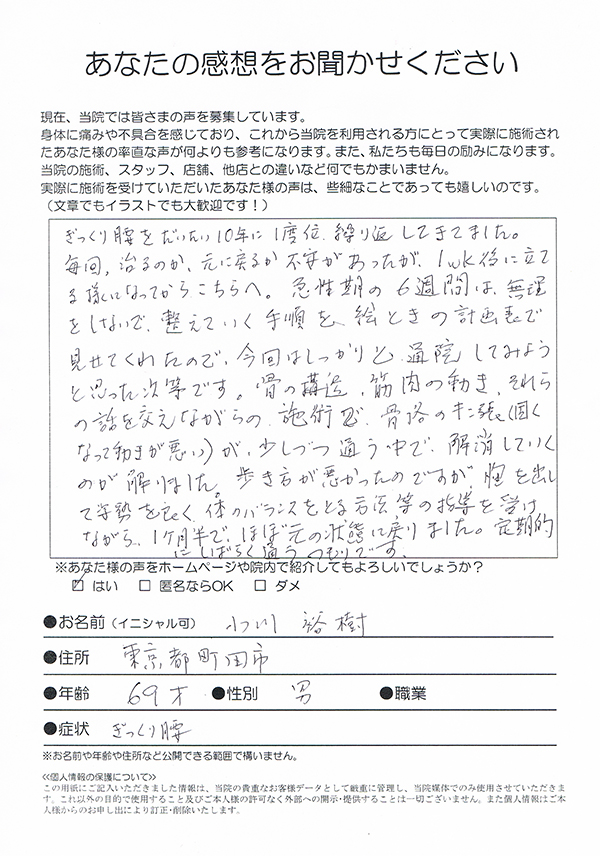 あなたの感想をお聞かせください
現在、当院では皆さまの声を募集しています。
身体に痛みや不具合を感じており、これから当院を利用される方にとって実際に施術され
たあなた様の率直な声が何よりも参考になります。また、私たちも毎日の励みになります。
当院の施術、スタッフ、店舗、他店との違いなど何でもかまいません。
実際に施術を受けていただいたあなた様の声は、些細なことであっても嬉しいのです。
（文章でもイラストでも大歓迎です！）
ぎっくり腰をだいたい10年に1度位、繰り返してきてました。
毎回、治るのか、元に戻るか不安があったが、1wk後に立て
る様になってからこちらへ。急性期の6週間は、無理
をしないで、整えていく手順を、絵ときの計画表で
見せてくれたので、今回はしっかりと通院してみよう
と思った次第です。骨の構造、筋肉の動き、それら
の話を交えながらの施術で、骨格のキン張(固く
なって動きが悪い)が、少しづつ通う中で、解消していく
のが解りました。歩き方が悪かったのですが、胸を出し
て姿勢を良く、体のバランスをとる方法等の指導を受け
ながら、1ケ月半で、ほぼ元の状態に戻りました。定期的
にしばらく通うつもりです。
※あなた様の声をホームページや院内で紹介してもよろしいでしょうか？
☑ はい □ 匿名ならOK □ ダメ
●お名前（イニシャル可） 小川 裕樹
●住所 東京都町田市
●年齢 69才 ●性別 男 ●職業
●症状 ぎっくり腰
※お名前や年齢や住所など公開できる範囲で構いません。
≪個人情報の保護について≫
この用紙にご記入いただきました情報は、当院の貴重なお客様データとして厳重に管理し、当院媒体でのみ使用させていただきま
す。これ以外の目的で使用すること及びご本人様の許可なく外部への開示・提供することは一切ございません。また個人情報はご本
人様からのお申し出により訂正・削除いたします。